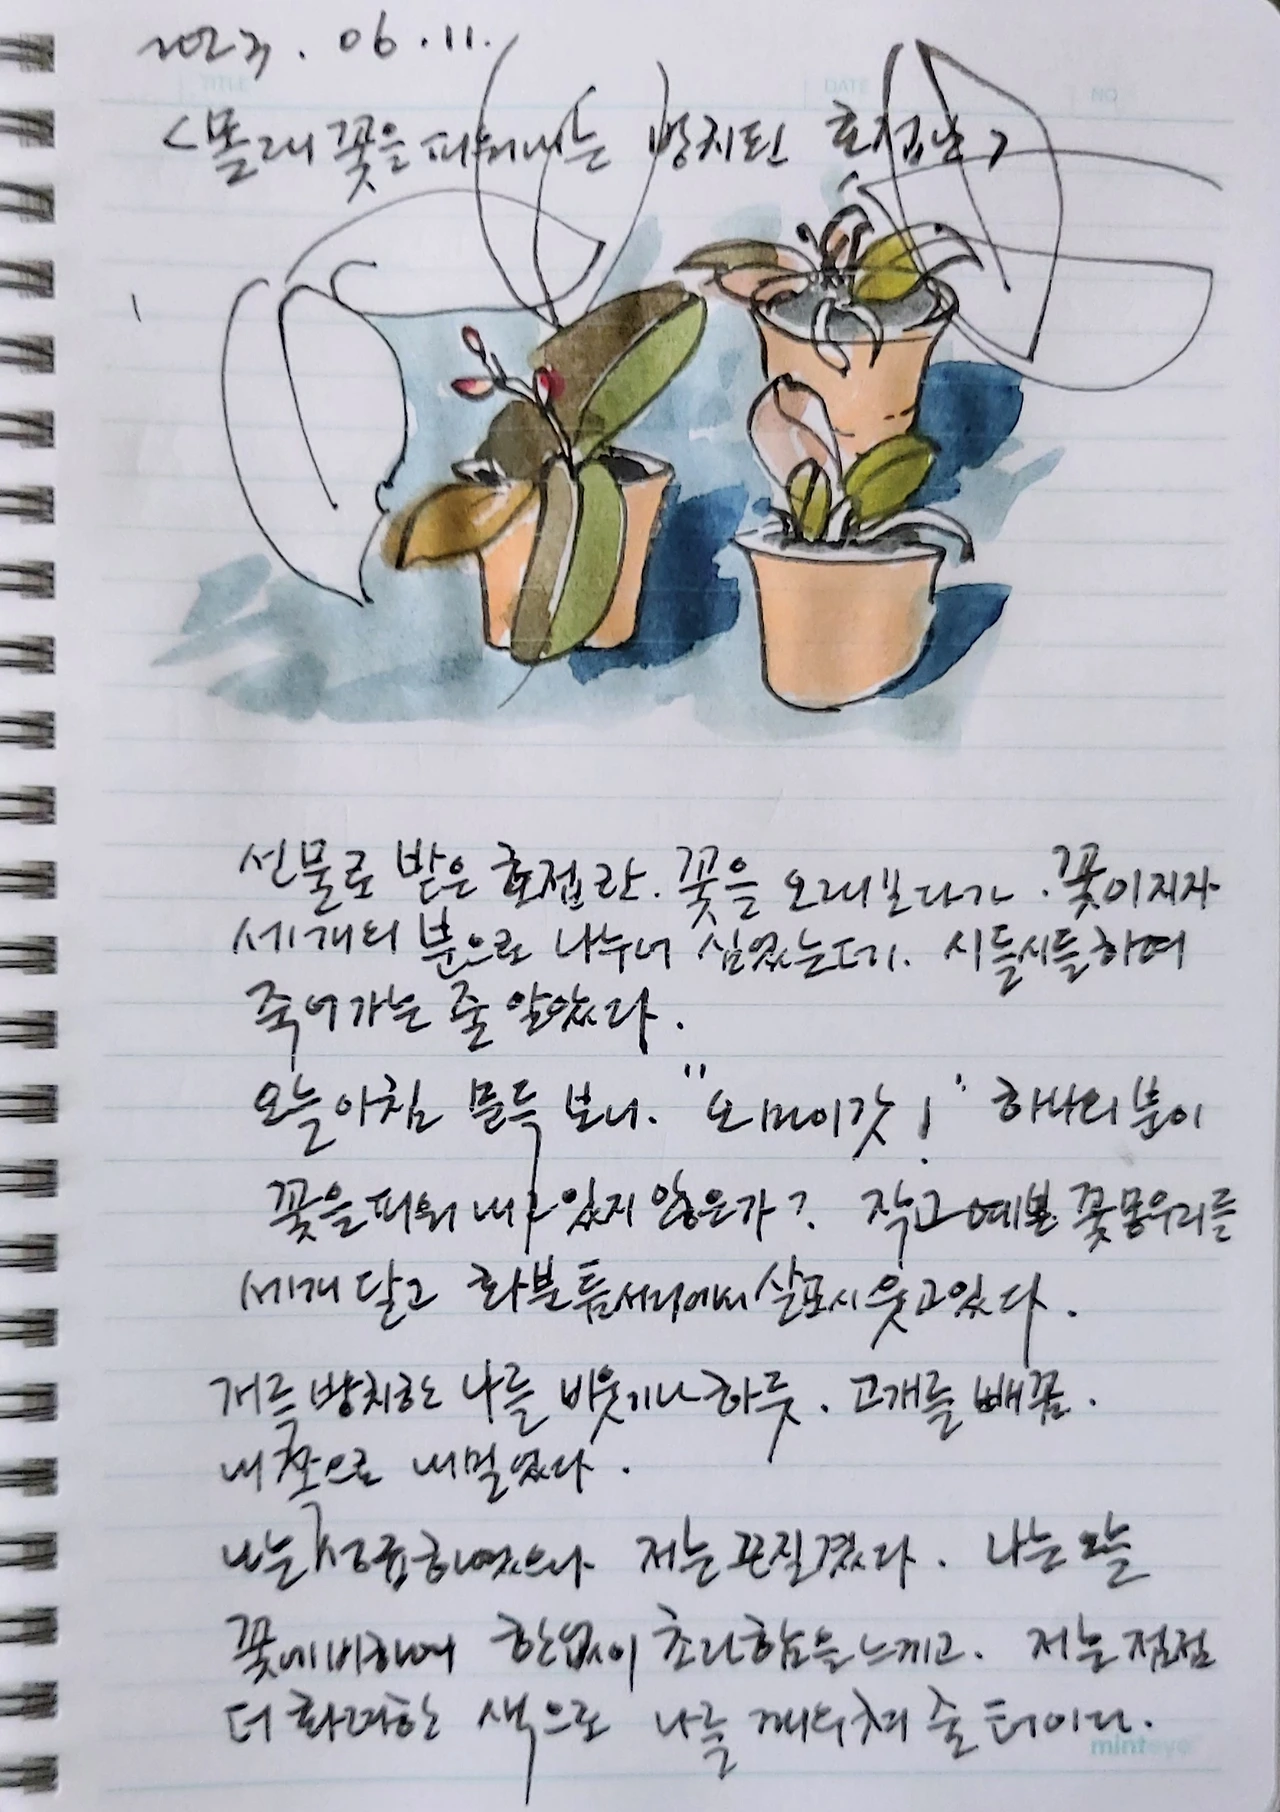 2023. 06.11.
TITLE DATE NO
<몰래 꽃을 피워내는 방치된 호접난>
선물로 받은 호접란. 꽃을 오래보다가. 꽃이지자
세개의 분으로 나누어 심었는데. 시들시들하여
죽어가는 줄 알았다.
오늘아침 문득 보니. "오마이갓!" 하나의분이
꽃을피워 내고있지 않은가? 작고예쁜 꽃몽우리를
세개달고 화분틈서리에서살포시웃고있다.
저를방치한 나를 비웃기나하듯. 고개를빼꼼.
내쪽으로 내밀었다.
나는성급하였으나 저는끈질겼다. 나는오늘
꽃에비하여 한없이초라함을느끼고. 저는점점
더화려한 색으로 나를깨우쳐줄터이다.
minteye